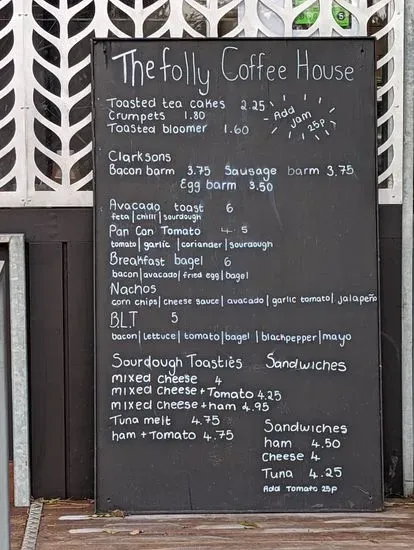 The folly Coffee House
Toasted tea cakes 2.25
Crumpets 1.80
Toasted bloomer 1.60
Add
jam
25p
Clarksons
Bacon barm 3.75 Sausage barm 3.75
Egg barm 3.50
Avacado toast 6
feta|chilli|sourdough
Pan Con Tomato 4.5
tomato|garlic|coriander|sourdough
Breakfast bagel 6
bacon|avacado|fried egg|bagel
Nachos
corn chips|cheese sauce|avacado|garlic tomato|jalapeño
B.L.T 5
bacon|lettuce|tomato|bagel|blackpepper|mayo
Sourdough Toasties Sandwiches
mixed cheese 4
mixed cheese + Tomato 4.25
mixed cheese + ham 4.95
Tuna melt 4.75
ham + Tomato 4.75
Sandwiches
ham 4.50
Cheese 4
Tuna 4.25
Add Tomato 25p